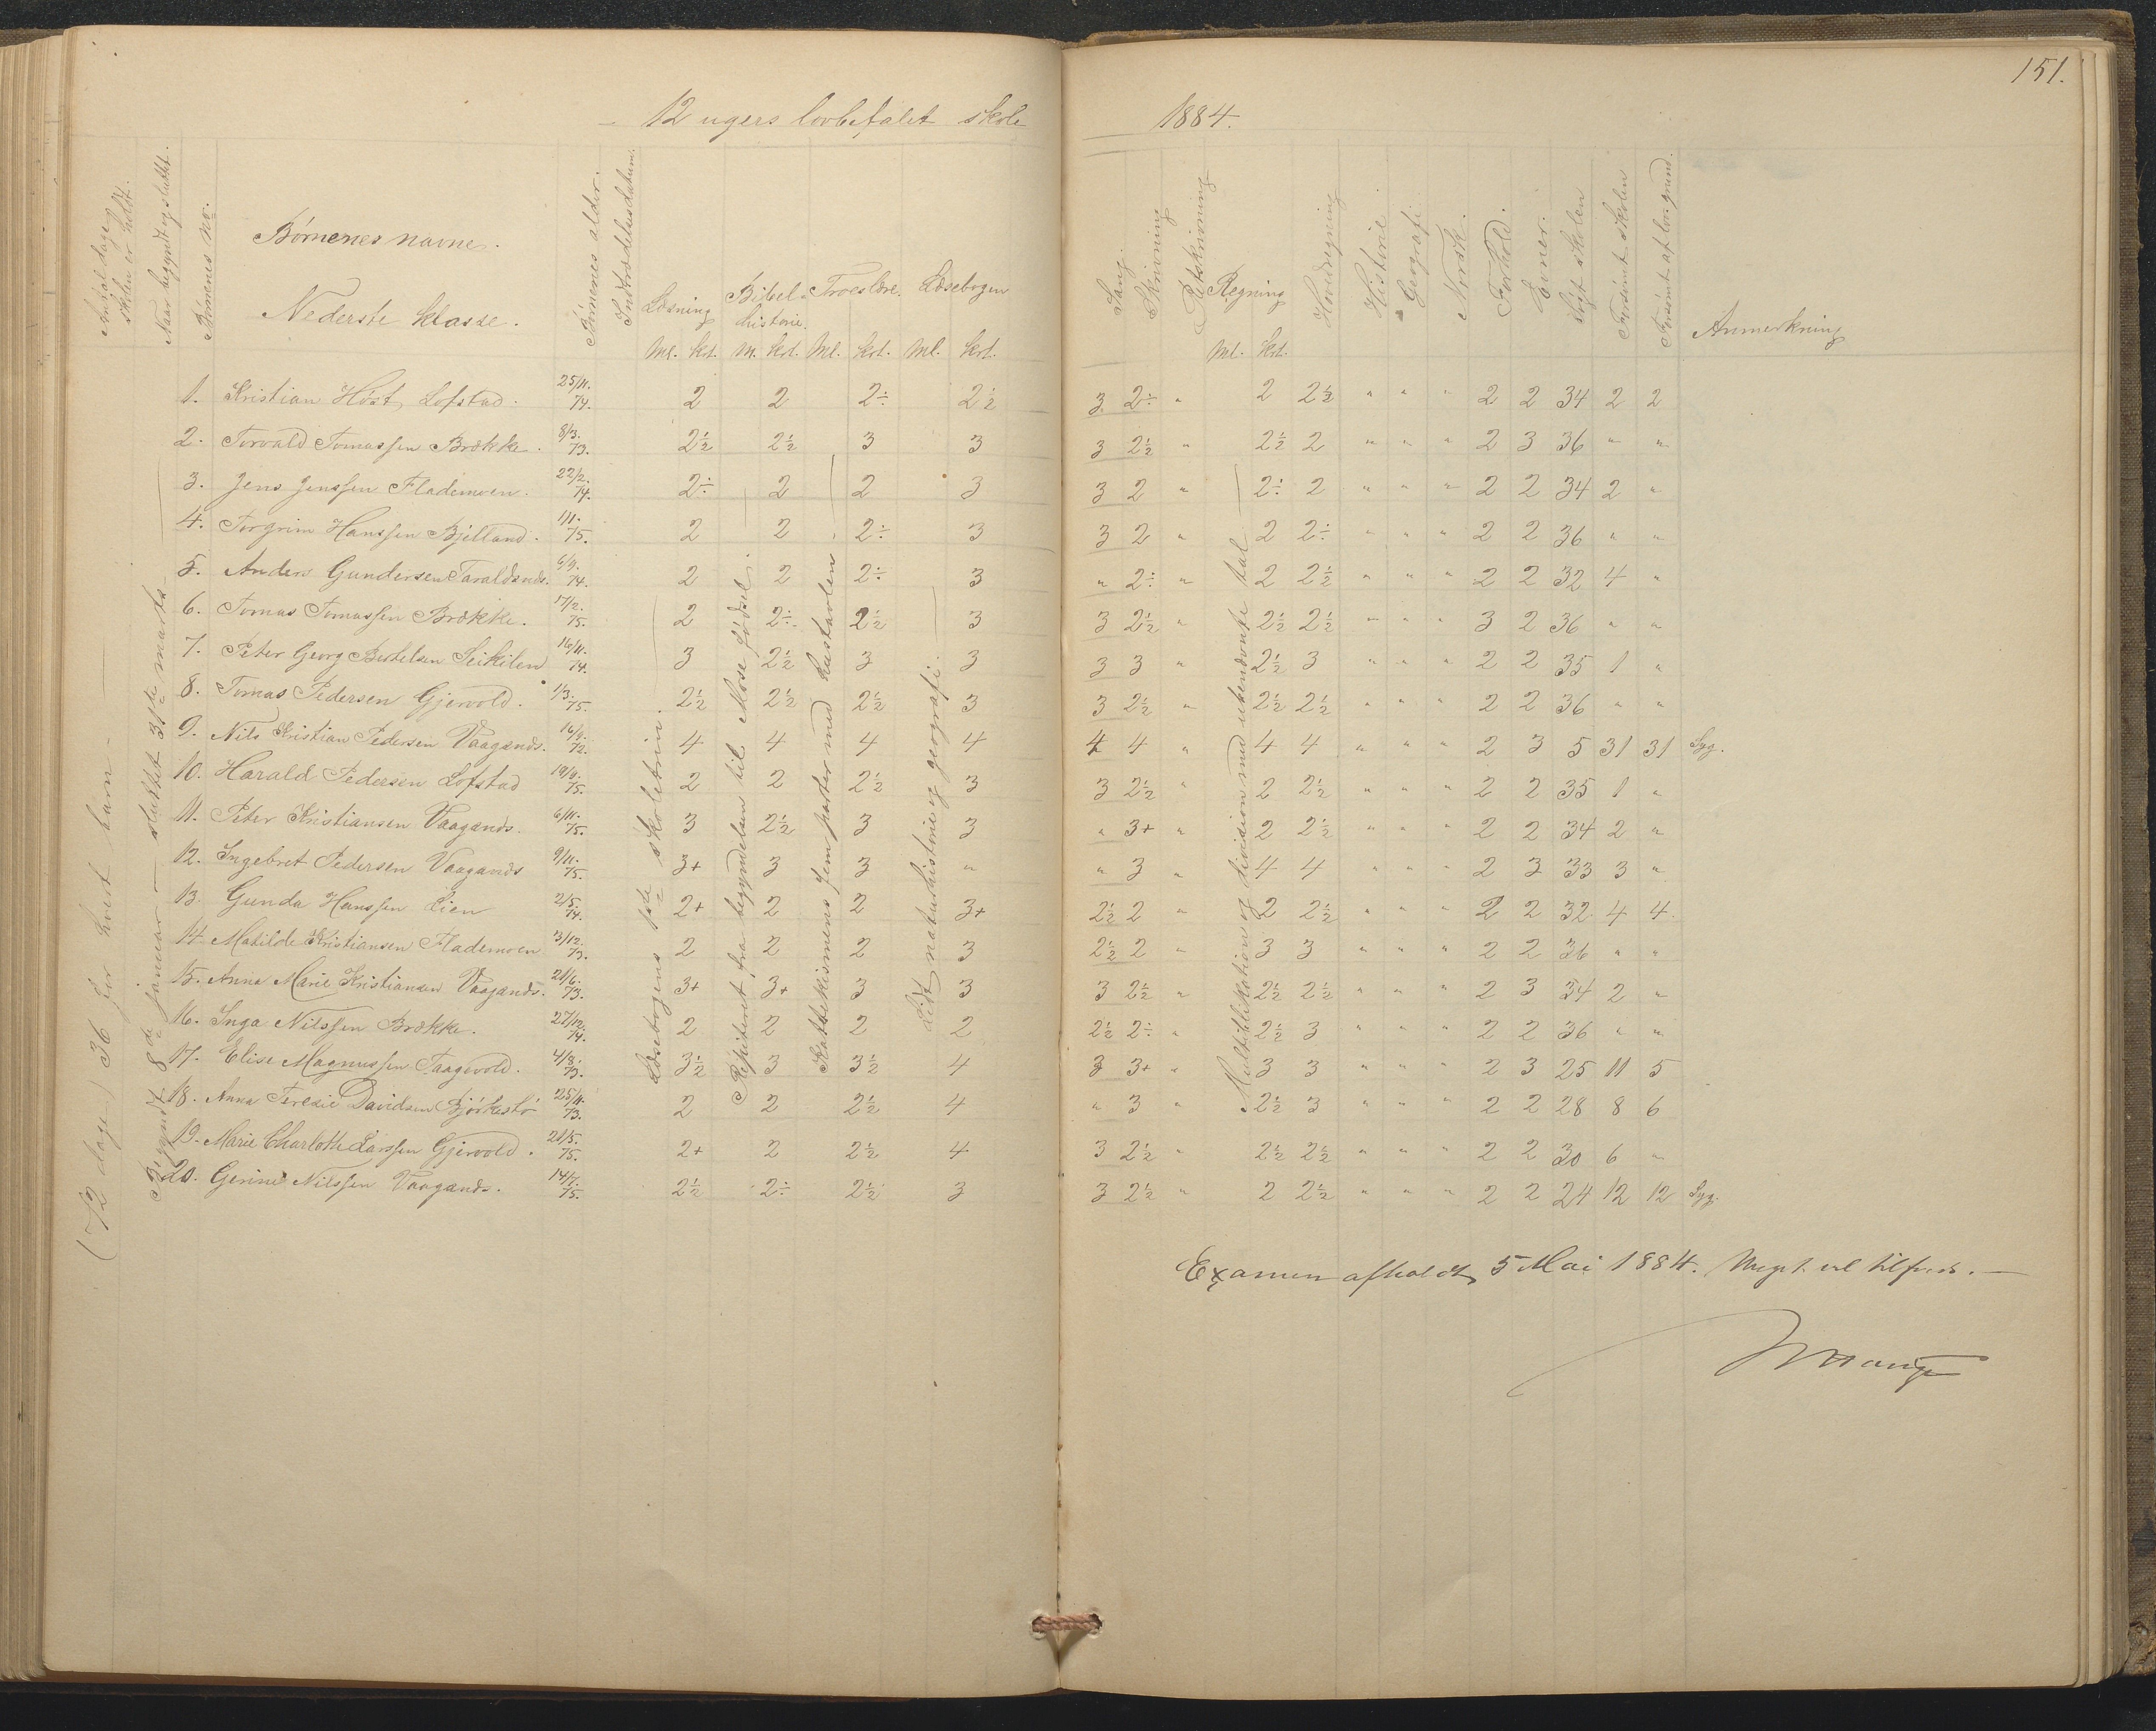 151.
12 ugers lovbefalet skole 1884.
Antal dage skolen er holdt.
Naar begyndt og sluttet.
Börnenes no.
Börnenes navne.
Nederste klasse.
Börnenes alder.
Indtrædelsesdatum.
Læsning Bibelhistorie. Troeslære. Læsebogen
Ml. krt. M. krt. Ml. krt. Ml. krt.
Sang. Skrivning Retskrivning Regning Hovedregning Historie Geografi Norsk. Forhold. Evner. Sögt skolen Forsömt skolen Forsömt af lov. grund. Anmerkning
Ml. krt.
(72 dage) 36 for hvert barn
Begyndt 8de januar sluttet 31te marts
Læsebogens 1ste skoletrin.
Repiteret fra begyndelsen til Mose födsel.
Kattekismens fem parter med hustavlen
Lidt naturhistorie og geografi.
Multiplikation og division med ubenævnte tal
1. Kristian Höst Lofstad. 25/11. 74. 2 2 2÷ 2½ 3 2÷ " 2 2½ " " " 2 2 34 2 2
2. Torvald Tomassen Brække. 8/3. 73. 2½ 2½ 3 3 3 2½ " 2½ 2 " " " 2 3 36 " "
3. Jens Jenssen Flademoen. 22/2. 74. 2÷ 2 2 3 3 2 " 2÷ 2 " " " 2 2 34 2 "
4. Torgrim Hanssen Bjelland. 1/11. 75. 2 2 2÷ 3 3 2 " 2 2÷ " " " 2 2 36 " "
5. Anders Gundersen Taraldsnds. 6/9. 74. 2 2 2÷ 3 " 2÷ " 2 2½ " " " 2 2 32 4 "
6. Tomas Tomassen Brække. 17/2. 75. 2 2÷ 2½ 3 3 2½ " 2½ 2½ " " " 3 2 36 " "
7. Peter Georg Bertelsen Leikilen 16/11. 74. 3 2½ 3 3 3 3 " 2½ 3 " " " 2 2 35 1 "
8. Tomas Pedersen Gjervold. 1/3. 75. 2½ 2½ 2½ 3 3 2½ " 2½ 2½ " " " 2 2 36 " "
9. Nils Kristian Pedersen Vaagsnds. 16/9. 72. 4 4 4 4 4 4 " 4 4 " " " 2 3 5 31 31 Syg.
10. Harald Pedersen Lofstad 19/9. 75. 2 2 2½ 3 3 2½ " 2 2½ " " " 2 2 35 1 "
11. Peter Kristiansen Vaagsnds. 6/11. 75. 3 2½ 3 3 " 3+ " 2 2½ " " " 2 2 34 2 "
12. Ingebret Pedersen Vaagsnds 9/11. 75. 3+ 3 3 " " 3 " 4 4 " " " 2 3 33 3 "
13. Gunda Hanssen Lien 2/5. 74. 2+ 2 2 3+ 2½ 2 " 2 2½ " " " 2 2 32 4 4.
14. Matilde Kristiansen Flademoen 3/12. 73. 2 2 2 3 2½ 2 " 3 3 " " " 2 2 36 " "
15. Anna Marie Kristiansen Vaagsnds. 21/6. 73. 3+ 3+ 3 3 3 2½ " 2½ 2½ " " " 2 3 34 2 "
16. Inga Nilssen Brække. 27/12. 74. 2 2 2 2 2½ 2÷ " 2½ 3 " " " 2 2 36 " "
17. Elise Magnussen Taagvold. 4/8. 73. 3½ 3 3½ 4 3 3+ " 3 3 " " " 2 3 25 11 5
18. Anna Teresie Davidsen Björkestö 25/11. 73. 2 2 2½ 4 " 3 " 2½ 3 " " " 2 2 28 8 6
19. Marie Charlotte Larssen Gjervold. 21/5. 75. 2+ 2 2½ 4 3 2½ " 2½ 2½ " " " 2 2 30 6 "
20. Gerine Nilssen Vaagsnds. 14/7. 75. 2½ 2÷ 2½ 3 3 2½ " 2 2½ " " " 2 2 24 12 12 Syg.
Examen afholdt 5 Mai 1884. Meget vel tilfreds.